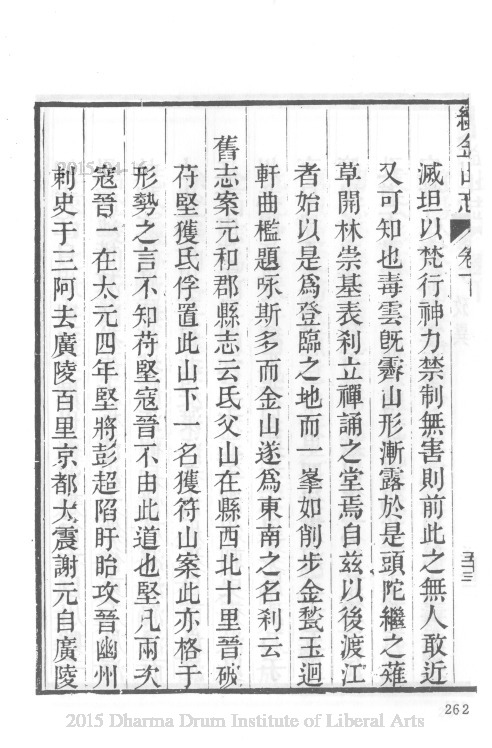 續金山志
卷下
五十三
滅坦以梵行神力禁制無害則前此之無人敢近
又可知也毒雲既霽山形漸露於是頭陀繼之薙
草開林崇基表刹立禪誦之堂焉自兹以後渡江
者始以是爲登臨之地而一峯如削步金甃玉迴
軒曲檻題咏斯多而金山遂爲東南之名刹云
舊志案元和郡縣志云氐父山在縣西北十里晉破
苻堅獲氐俘置此山下一名獲符山案此亦格于
形勢之言不知苻堅寇晉不由此道也堅凡兩次
寇晉一在太元四年堅將彭超陷盱眙攻晉幽州
刺史于三阿去廣陵百里京都大震謝元自廣陵
262
2015 Dharma Drum Institute of Liberal Arts